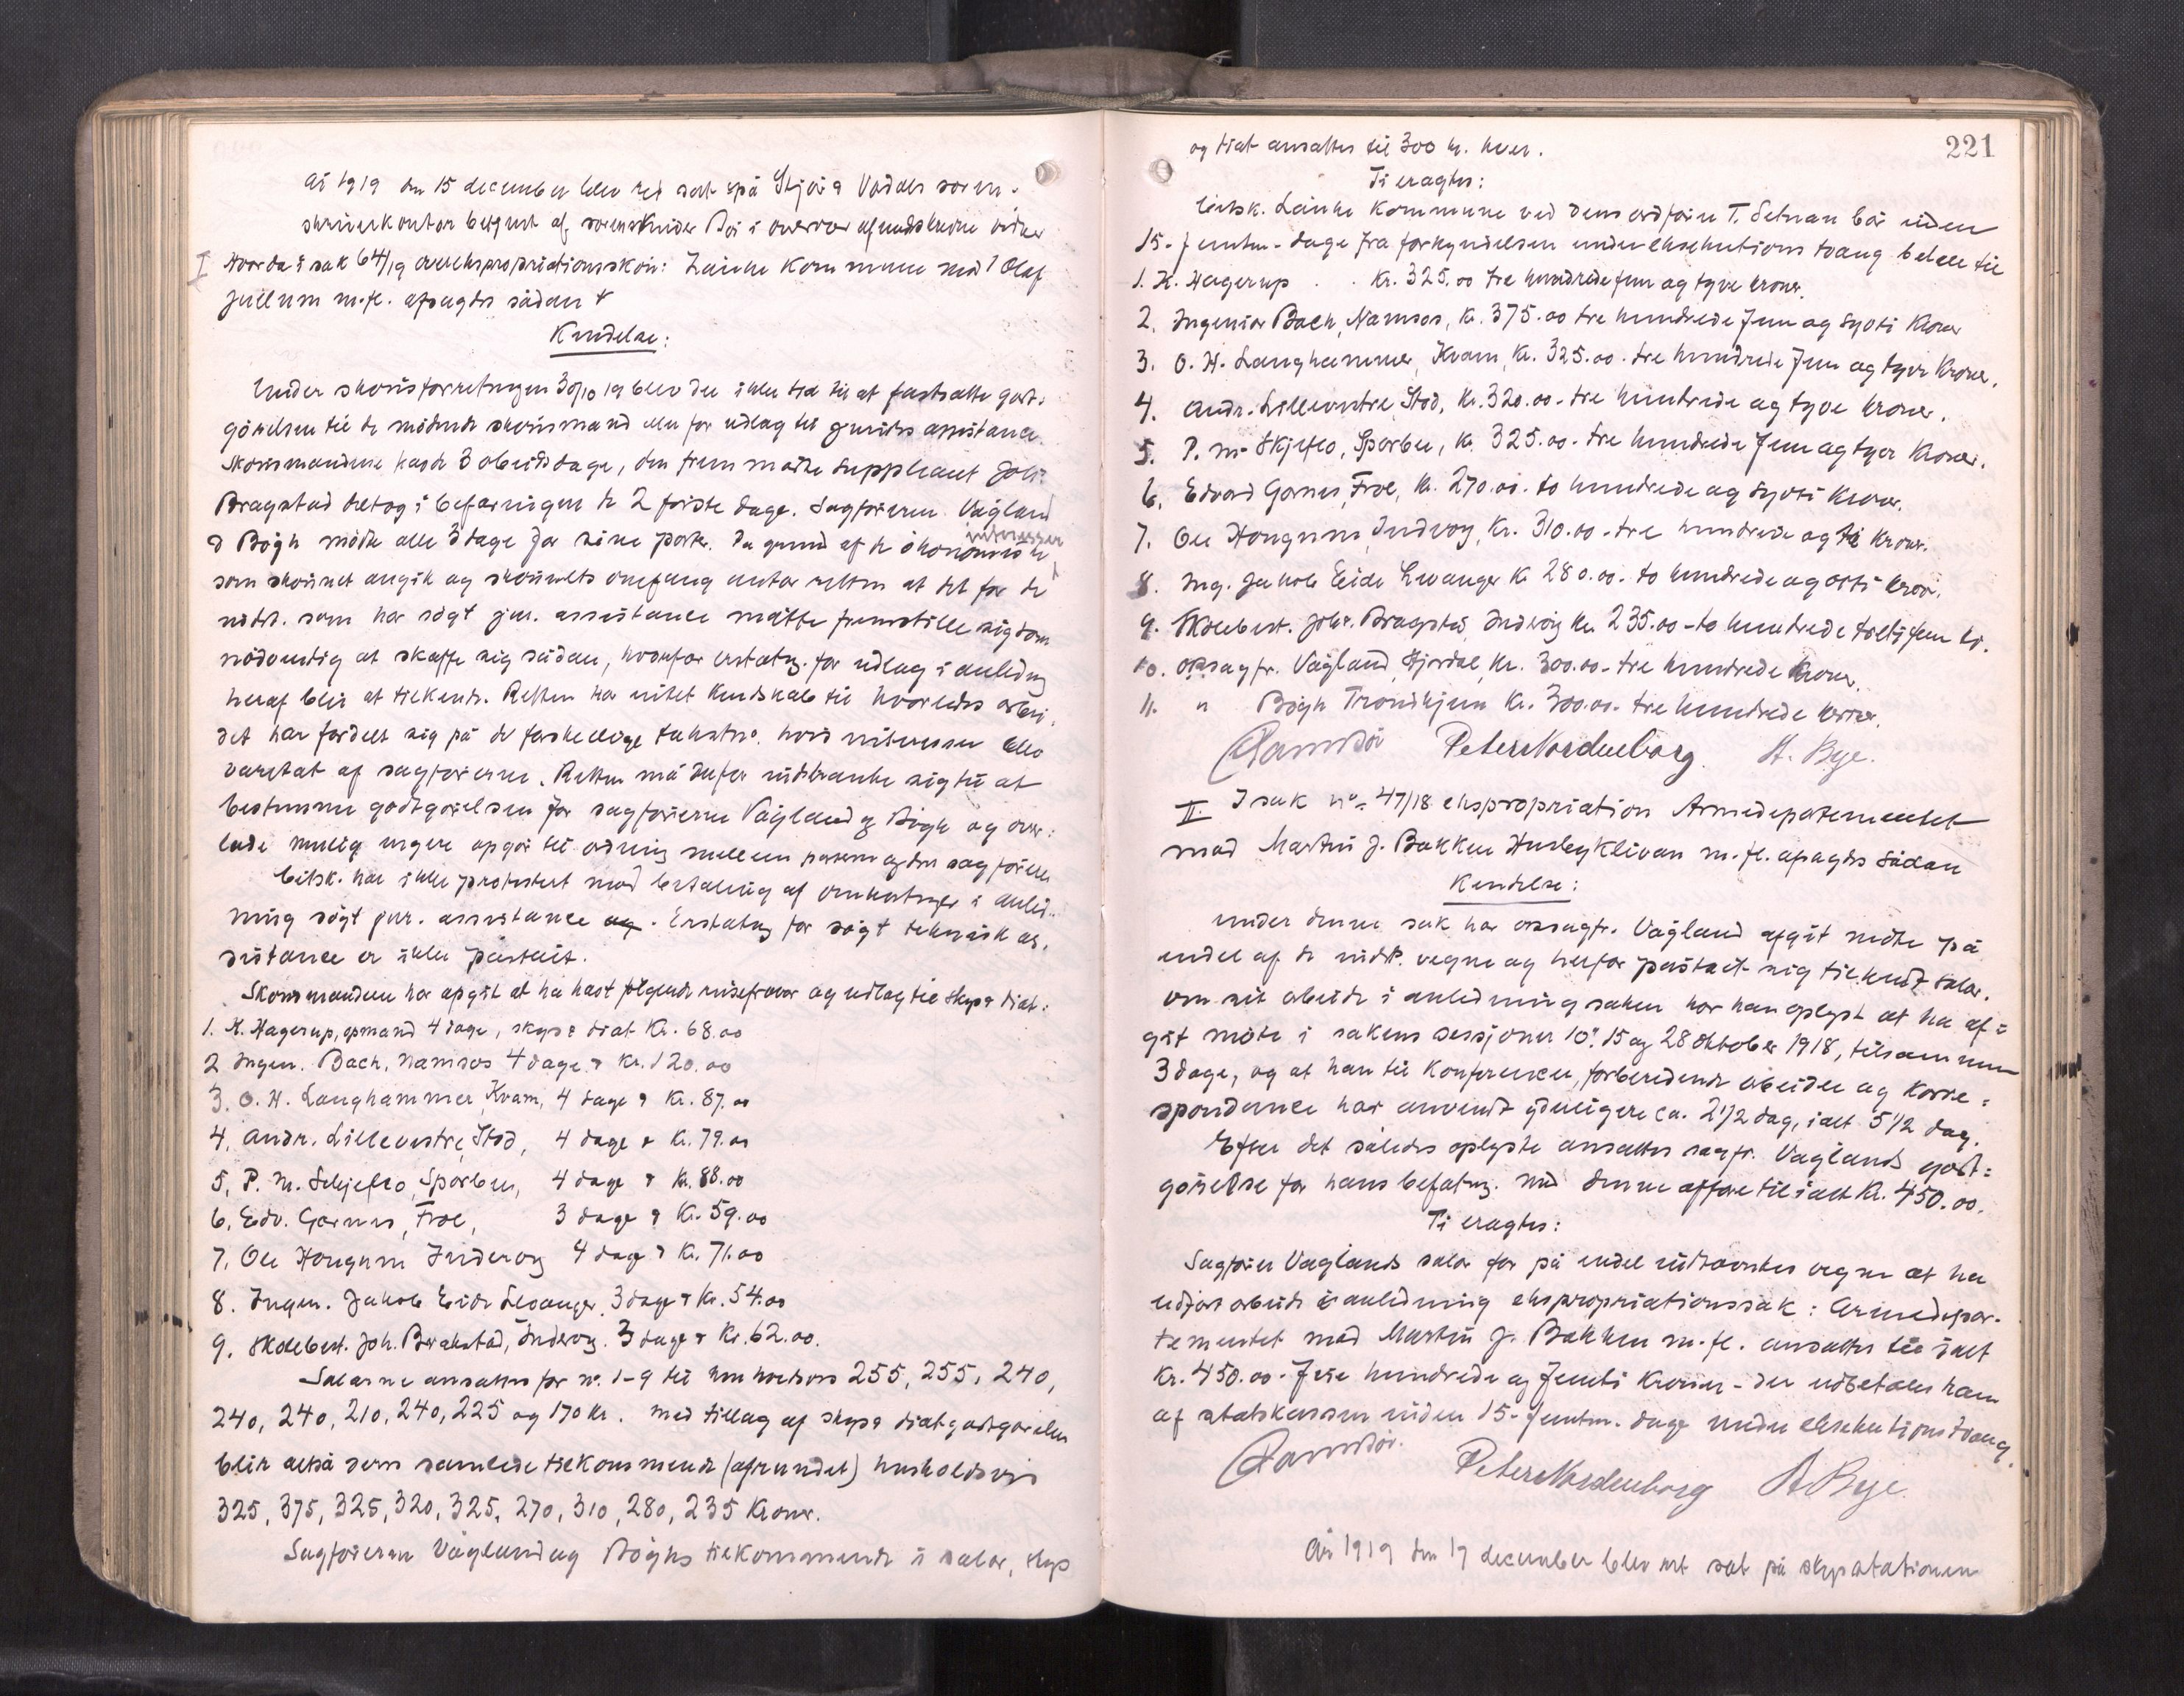 År 1919 den 15 december blev ret sat på Stjør & Værdals soren-
skriverkontor betjent af sorenskriver Bøi i overvær af undskrevne vidner
I Hvorda i sak 64/19 overekspropriationsskøn: Lånke Kommune mod Olaf
Jullum m.fl. afsagdes sådan
Kendelse:
Under skønsforretningen 30/10 19 blev der ikke tid til at fastsætte godt-
gørelsen til de mødende skønsmænd eller for udlæg til juridisk assistance.
Skønsmændene havde 3 arbeidsdage, den fremmøtte suppleant Joh:
Bragstad deltog i befaringen de 2 første dage. Sagførerne Vågland
& Bøgh møtte alle 3 dage for sine parter. Pa grund af de økonomiske interesser
som skønnet angik og skønnets omfang antar retten at det for de
indst. som har søgt jur. assistance måtte fremstille sig som
nødvendig at skaffe sig sådan, hvorfor erstatng. for udlæg i anledng
heraf blir at tilkende. Retten har intet kendskab til hvorledes arbei-
det har fordelt sig på de forskellige takstnr. hvis interesser blev
varetat af sagførerne. Retten må derfor indskrænke sig til at
bestemme godtgørelsen for sagførerne Vågland & Bøgh og over-
lade mulig videre opgør til ordning mellem parterne og den sagfører
Citsk. har ikke protestert mod betaling af omkostninger i anled-
ning søgt jur. assistance. Erstatng for søgt teknisk as-
sistance er ikke påstået.
Skønsmændene har opgit at ha hast følgende reisefravær og udlæg til skyds & diæt:
1. H. Hagerup, opmand 4 dage, skyds & diæt Kr. 68.00
2 Ingen. Bach, Namsos 4 dage & Kr. 120.00
3. O. H. Langhammer, Kvam, 4 dage & Kr. 87.00
4. Andr. Lillevestre, Stod, 4 dage & Kr. 79.00
5. P. M. Skjefto, Sparbu, 4 dage & Kr. 88.00
6. Edv. Garnes, Frol, 3 dage & Kr. 59.00
7. Ole Hougum Inderøy 4 dage & Kr. 71.00
8. Ingen. Jakob Eide Levanger 3 dage & Kr. 54.00
9. Skolebest. Joh. Brakstad, Inderøy. 3 dage & Kr. 62.00.
Salærene ansættes for nr. 1-9 til henholdsvis 255, 255, 240,
240, 240, 210, 240, 225 og 170 kr. Med tillæg af skyds & diætgodtgørelse
blir altså deres samlede tilkommende (afrundet) henholdsvis
325, 375, 325, 320, 325, 270, 310, 280, 235 Kroner.
Sagførerne Vågland og Bøghs tilkommende i salær, skyds
221
og diæt ansættes til 300 kr. hver.
Ti eragtes:
Citsk. Lånke Kommune ved dens ordfører T. Setnan bør inden
15- femten- dage fra forkyndelsen under eksekutions tvang betale til
1. H. Hagerup . . Kr. 325.00 tre hundrede fem og tyve kroner.
2. Ingeniør Bach, Namsos, Kr. 375.00 tre hundrede fem og sytti Kroner
3. O. H. Langhammer, Kvam, Kr. 325.00. tre hundrede fem og tyve Kroner.
4. Andr. Lillevestre, Stod, Kr. 320.00- tre hundrede og tyve kroner.
5. P. M. Skjefto, Sparbu, Kr. 325.00- tre hundrede fem og tyve Kroner.
6. Edvard Garnes, Frol, Kr. 270.00. to hundrede og sytti Kroner.
7. Ole Hougum, Inderøy, Kr. 310.00- tre hundrede og ti Kroner.
8. Ing. Jakob Eide Levanger Kr 280.00. to hundrede og otti kroner.
9. Skolebest. Joh. Bragstad, Inderøy Kr. 235.00- to hundrede tretifem kr.
10. Orsagfr. Vågland, Stjørdal, Kr. 300.00- tre hundrede kroner.
11. " Bøgh Trondhjem Kr. 300.00. tre hundrede kroner.
Peter Nordenborg. A. Bye.
II. I sak nr. 47/18 ekspropriation Armedepartementet
mod Martin J. Bakken Husbyklivan m.fl. afsagdes sådan
Kendelse:
Under denne sak har orsagfr. Vågland afgit møte på
endel af de indst. vegne og herfor påståt sig tilkendt salær.
Om sit arbeide i anledning saken har han oplyst at ha af-
git møte i sakens sessjoner 10, 15 og 28 oktober 1918, tilsammen
3 dage, og at han til konferencer, forberedende arbeider og korre-
spondance har anvendt yderligere ca. 2 1/2 dag, ialt 5 1/2 dag.
Efter det således oplyste ansættes sagfr. Vågland godt-
gørelse for hans befatng. med denne affære til ialt Kr. 450.00.
Ti eragtes:
Sagfører Vaglands salær for på endel indstevntes vegne at ha
udført arbeide i anledning ekspropriationssak: Armedepar-
tementet mod Martin J. Bakken m.fl. ansættes til ialt
Kr. 450.00- Fire hundrede og femti Kroner- der udbetales ham
af statskassen inden 15- femten- dage under eksekutionstvang.
Peter Nordenborg A Bye.
År 1919 den 19 december blev ret sat på skydsstationen